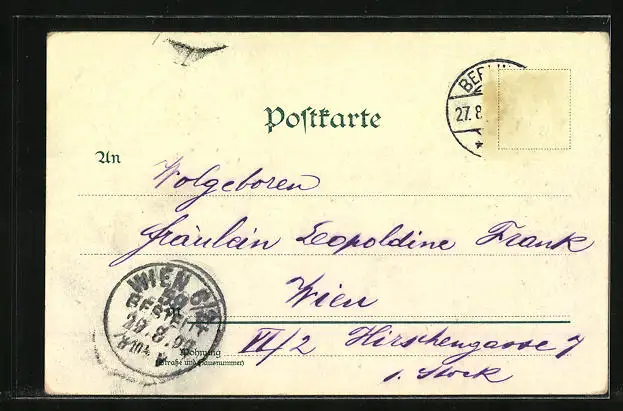 BERLIN
27.8.
Postkarte
An
Wolgeboren
Fräulein Leopoldine Frank
Wien
VI/2 Hirschengasse 7
1. Stock
WIEN 6/2
BESTELLT
29.8.99
Wohnung
(Straße und Hausnummer)